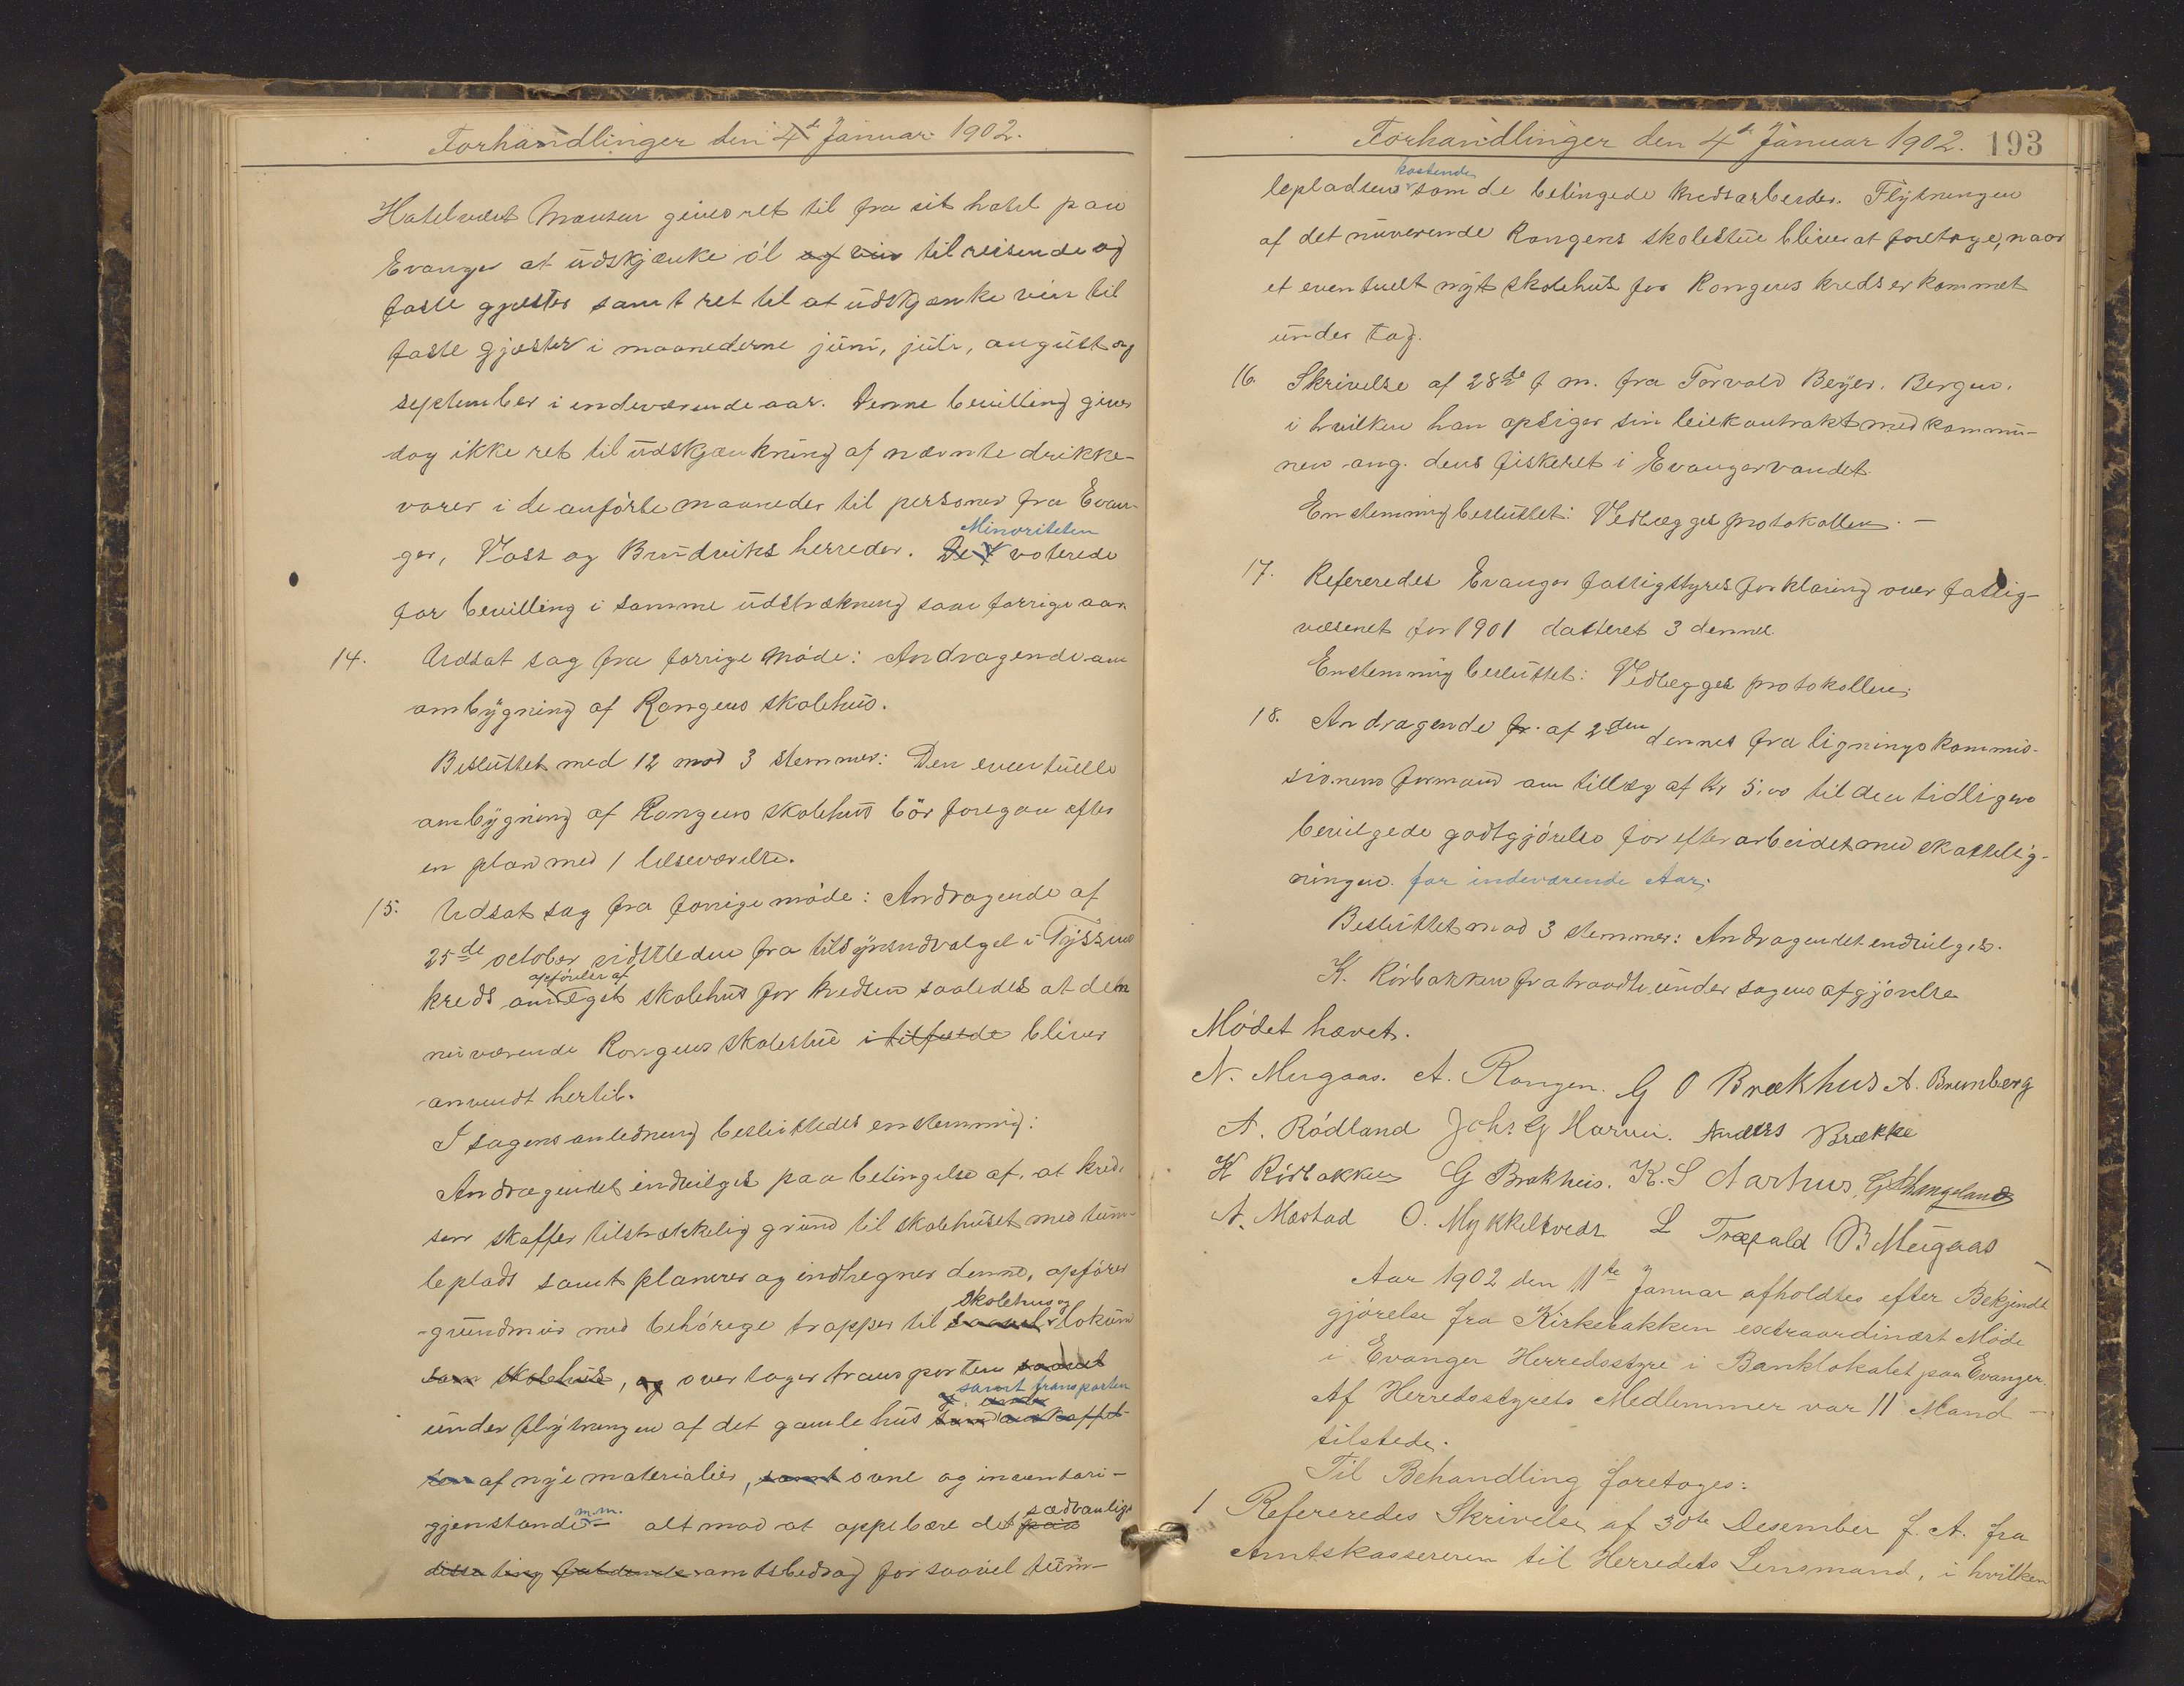 Forhandlinger den 4de Januar 1902.
Hotelvært Monsen gives ret til fra sit hotel paa
Evanger at udskjænke øl og vin til reisende og
faste gjæster samt ret til at udskjænke vin til
faste gjæster i maanederne juni, juli, august og
september i indeværende aar. Denne bevilling giver
dog ikke ret til udskjænkning af nævnte drikke-
varer i de anførte maaneder til personer fra Evan-
Minoriteten
ger, Voss og Bruviks herreder. voterede
for bevilling i samme udstrækning som forrige aar.
14. Udsat sag fra forrige møde: Andragende om
ombygning af Rongens skolehus.
Besluttet med 12 mod 3 stemmer: Den eventuelle
ombygning af Rongens skolehus bør foregaa efter
en plan med 1 læseværelse.
15. Udsat sag fra forrige møde: Andragende af
25de october sidstleden fra tilsynsudvalget i Tyssens
opførelse af
kreds om eget skolehus for kredsen saaledes at den
nuværende Rongens skolestue i tilfælde bliver
anvendt hertil.
I sagens anledning besluttedes enstemmig:
Andragendet indvilges paa betingelse af, at kred-
sen skaffer tilstrækkelig grund til skolehuset med tum-
leplads samt planerer og indhegner denne, opfører
skolehus og
grundmur med behørige trapper til saavel lokum
som skolehus, og overtager transporten saavel
samt transporten
under flytningen af det gamle hus
af nye materialier, samt ovne og inventari-
m.m. sædvanlige
gjenstande alt mod at oppebære det
disse ting faldende amtsbedrag for saavel tum-
Forhandlinger den 4de Januar 1902. 193
kostende
lepladsen som de betingede kredsarbeider. Flytningen
af det nuværende Rongens skolestue bliver at foretage, naar
et eventuelt nyt skolehus for Rongens kreds er kommet
under tag.
16. Skrivelse af 28de f. m. fra Torvald Beyer, Bergen,
i hvilken han opsiger sin leiekontrakt med kommu-
nen ang. dens fiskeret i Evangervandet.
Enstemmig besluttet: Vedlægges protokollen. —
17. Refereredes Evanger fattigstyres forklaring over fattig-
væsenet for 1901 datteret 3 dennes.
Enstemmig besluttet: Vedlægges protokollen.
18. Andragende fr. af 2den dennes fra ligningskommis-
sionens formand om tillæg af kr 5,00 til den tidligere
bevilgede godtgjørelse for efterarbeidet med skattelig-
ningen. for indeværende Aar.
Besluttet mod 3 stemmer: Andragendet indvilges.
K. Rörbakken fratraadte under sagens afgjørelse
Mødet hævet.
N. Mugaas. A. Rongen. G O Brækhus A. Brunborg
A. Rödland Johs. G Horvei. Anders Brække
K Rörbakken G Brakhus. K. S Aarhus,
A. Mæstad O. Mykkeltvedt L Træfald B Mugaas
Aar 1902 den 11te Januar afholdtes efter Bekjendt
gjørelse fra Kirkebakken extraordinært Møde
i Evanger Herredsstyre i Banklokalet paa Evanger.
Af Herredsstyrets Medlemmer var 11 Mand —
tilstede.
Til Behandling foretoges:
1 Refereredes Skrivelse af 30te Desember f. A. fra
Amtskassereren til Herredets Lensmand, i hvilken